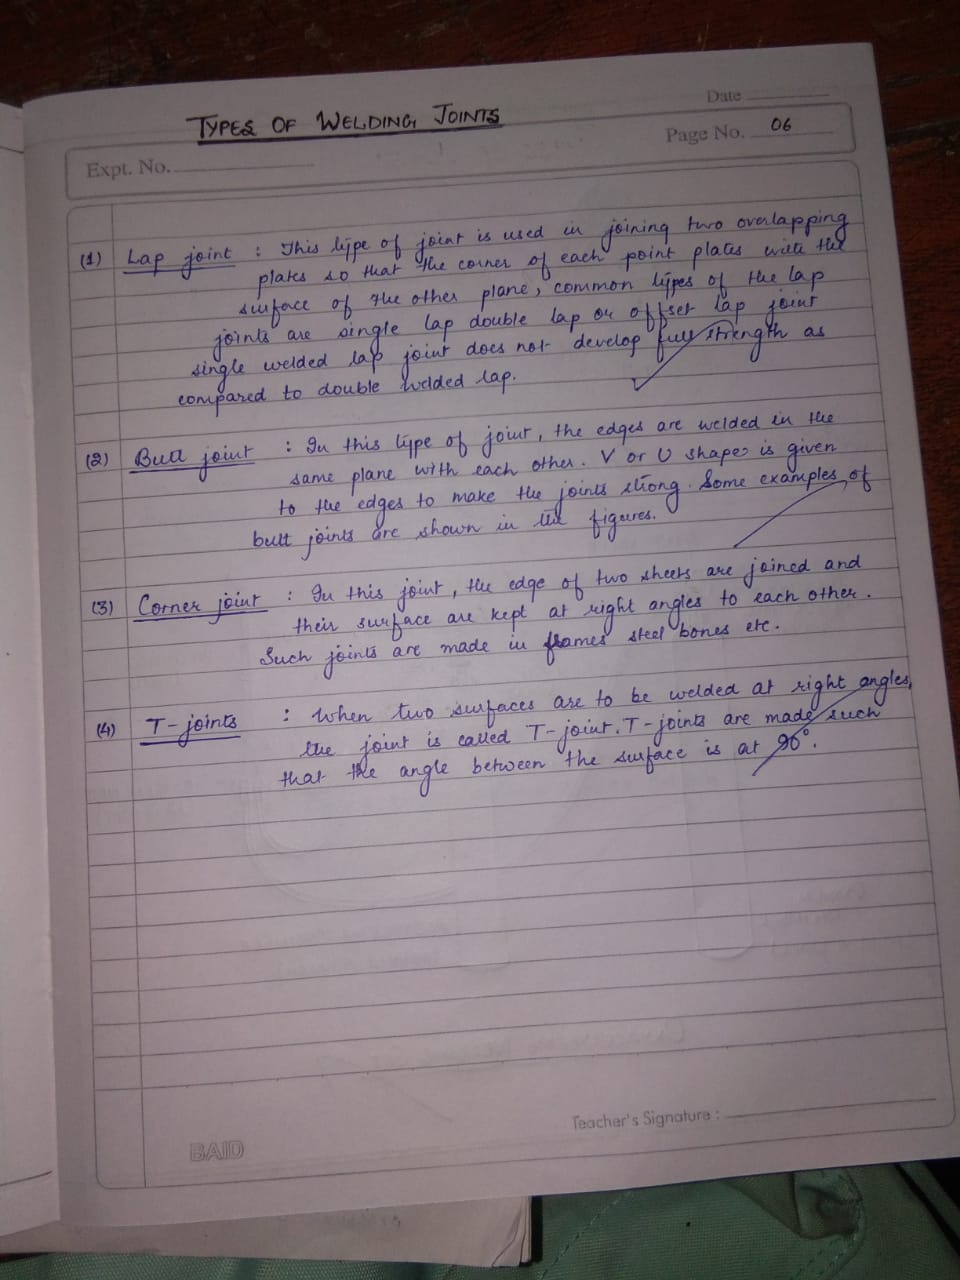 Date
TYPES OF WELDING JOINTS
Page No. 06
Expt. No.
(1) Lap joint : This type of joint is used in joining two overlapping
plates so that the corner of each point plates with the
surface of the other plane, common types of the lap
joints are single lap double lap or offset lap joint
single welded lap joint does not develop full strength as
compared to double welded lap.
(2) Butt joint : In this type of joint, the edges are welded in the
same plane with each other. V or U shapes is given
to the edges to make the joints strong. Some examples of
butt joints are shown in the figures.
(3) Corner joint : In this joint, the edge of two sheets are joined and
their surface are kept at right angles to each other.
Such joints are made in frames steel bones etc.
(4) T-joints : When two surfaces are to be welded at right angles,
the joint is called T-joint. T-joints are made such
that the angle between the surface is at 90°.
Teacher's Signature :
BAID